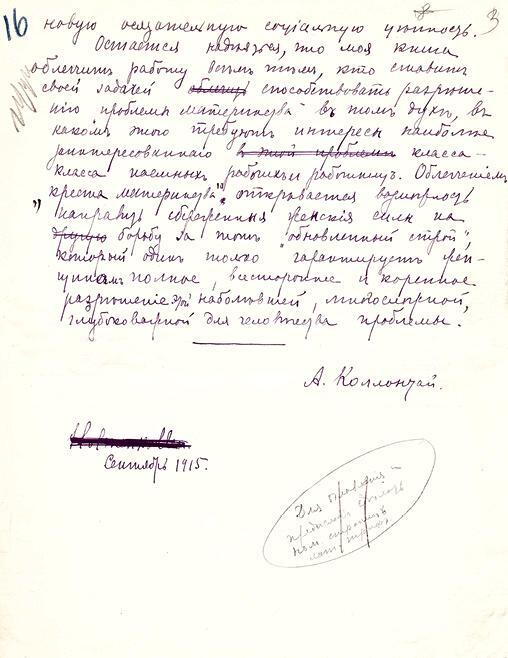 16 3
новую осязательную социальную ценность.
Остается надеяться, что моя книга
облегчит работу всем тем, кто ставит
своей задачей способствовать разреше-
нію проблемы материнства въ томъ духѣ, въ
какомъ этого требуютъ интересы наиболѣе
заинтересованнаго въ этой проблемѣ класса -
класса наемныхъ рабочихъ и работницъ. Облегченіемъ
"креста материнства" открывается возможность
направить сбереженныя женскія силы на
другую борьбу за тотъ "обновленный строй",
который одинъ только гарантируетъ жен-
щинамъ полное, всестороннее и коренное
разрѣшеніе этой наболѣвшей, многосторонней,
глубоковажной для человѣчества проблемы.
А. Коллонтай.
Сентябрь 1915.
Для